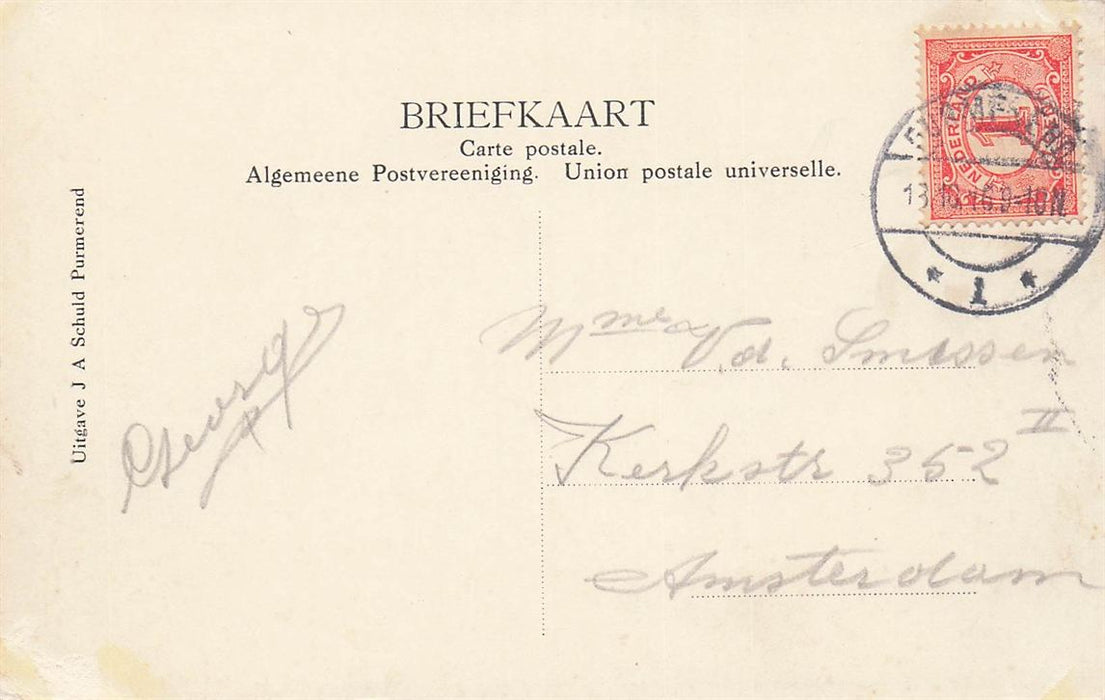 BRIEFKAART
Carte postale.
Algemeene Postvereeniging. Union postale universelle.
Uitgave J A Schuld Purmerend
NEDERLAND
1
1
Mme v. d. Smissen
Kerkstr 352 II
Amsterdam
George